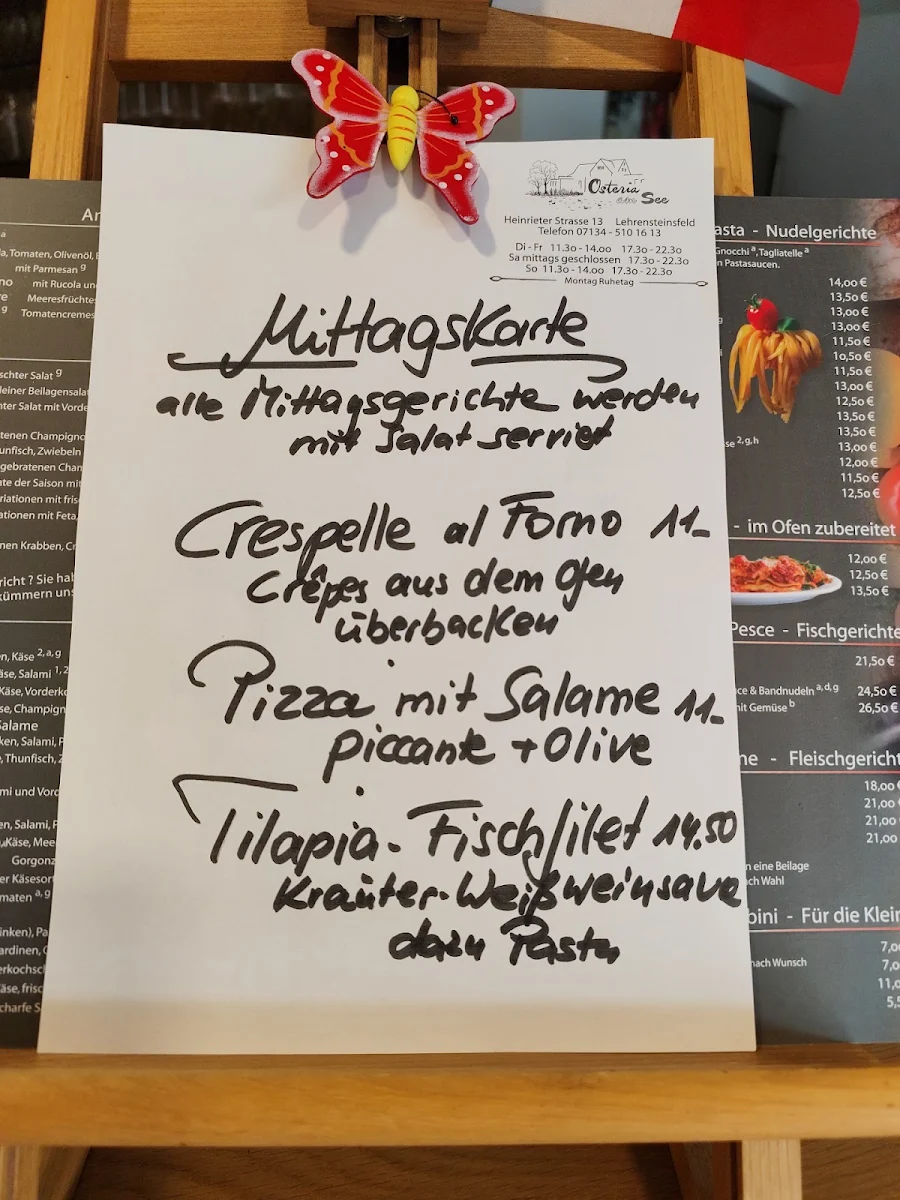 Osteria
am See
Heinrieter Strasse 13 Lehrensteinsfeld
Telefon 07134 - 510 16 13
Di - Fr 11.3o - 14.oo 17.3o - 22.3o
Sa mittags geschlossen 17.3o - 22.3o
So 11.3o - 14.oo 17.3o - 22.3o
Montag Ruhetag
Mittagskarte
alle Mittagsgerichte werden
mit Salat serviet
Crespelle al Forno 11-
Crêpes aus dem Ofen
überbacken
Pizza mit Salame 11-
piccante + Olive
Tilapia-Fischfilet 14.50
Kräuter-Weißweinsauce
dazu Pasta
a, Tomaten, Olivenöl,
mit Parmesan g
mit Rucola und
Meeresfrüchte
Tomatencremes
schter Salat g
leiner Beilagensalat
nter Salat mit Vorde
tenen Champigno
unfisch, Zwiebeln
gebratenen Chan
te der Saison mit
riationen mit fris
ationen mit Feta,
nen Krabben, Cr
richt ? Sie hab
kümmern uns
n, Käse 2, a, g
äse, Salami 1, 2
Käse, Vorderko
se, Champign
Salame
ken, Salami, F
, Thunfisch, Z
mi und Vord
en, Salami, P
Käse, Mee
Gorgonz
er Käsesort
maten a, g
inken), Pa
ardinen, O
erkochsc
äse, frisc
charfe S
asta - Nudelgerichte
Gnocchi a, Tagliatelle a
n Pastasaucen.
14,oo €
13,5o €
13,oo €
13,oo €
11,5o €
1o,5o €
11,5o €
13,oo €
12,5o €
13,5o €
13,5o €
se 2,g,h 13,oo €
12,oo €
11,5o €
12,5o €
- im Ofen zubereitet
12,oo €
12,5o €
13,5o €
Pesce - Fischgerichte
21,5o €
ce & Bandnudeln a,d,g 24,5o €
mit Gemüse b 26,5o €
ne - Fleischgericht
18,oo
21,oo
21,oo
21,oo
n eine Beilage
ch Wahl
bini - Für die Klein
7,o
nach Wunsch 7,o
11,o
5,5